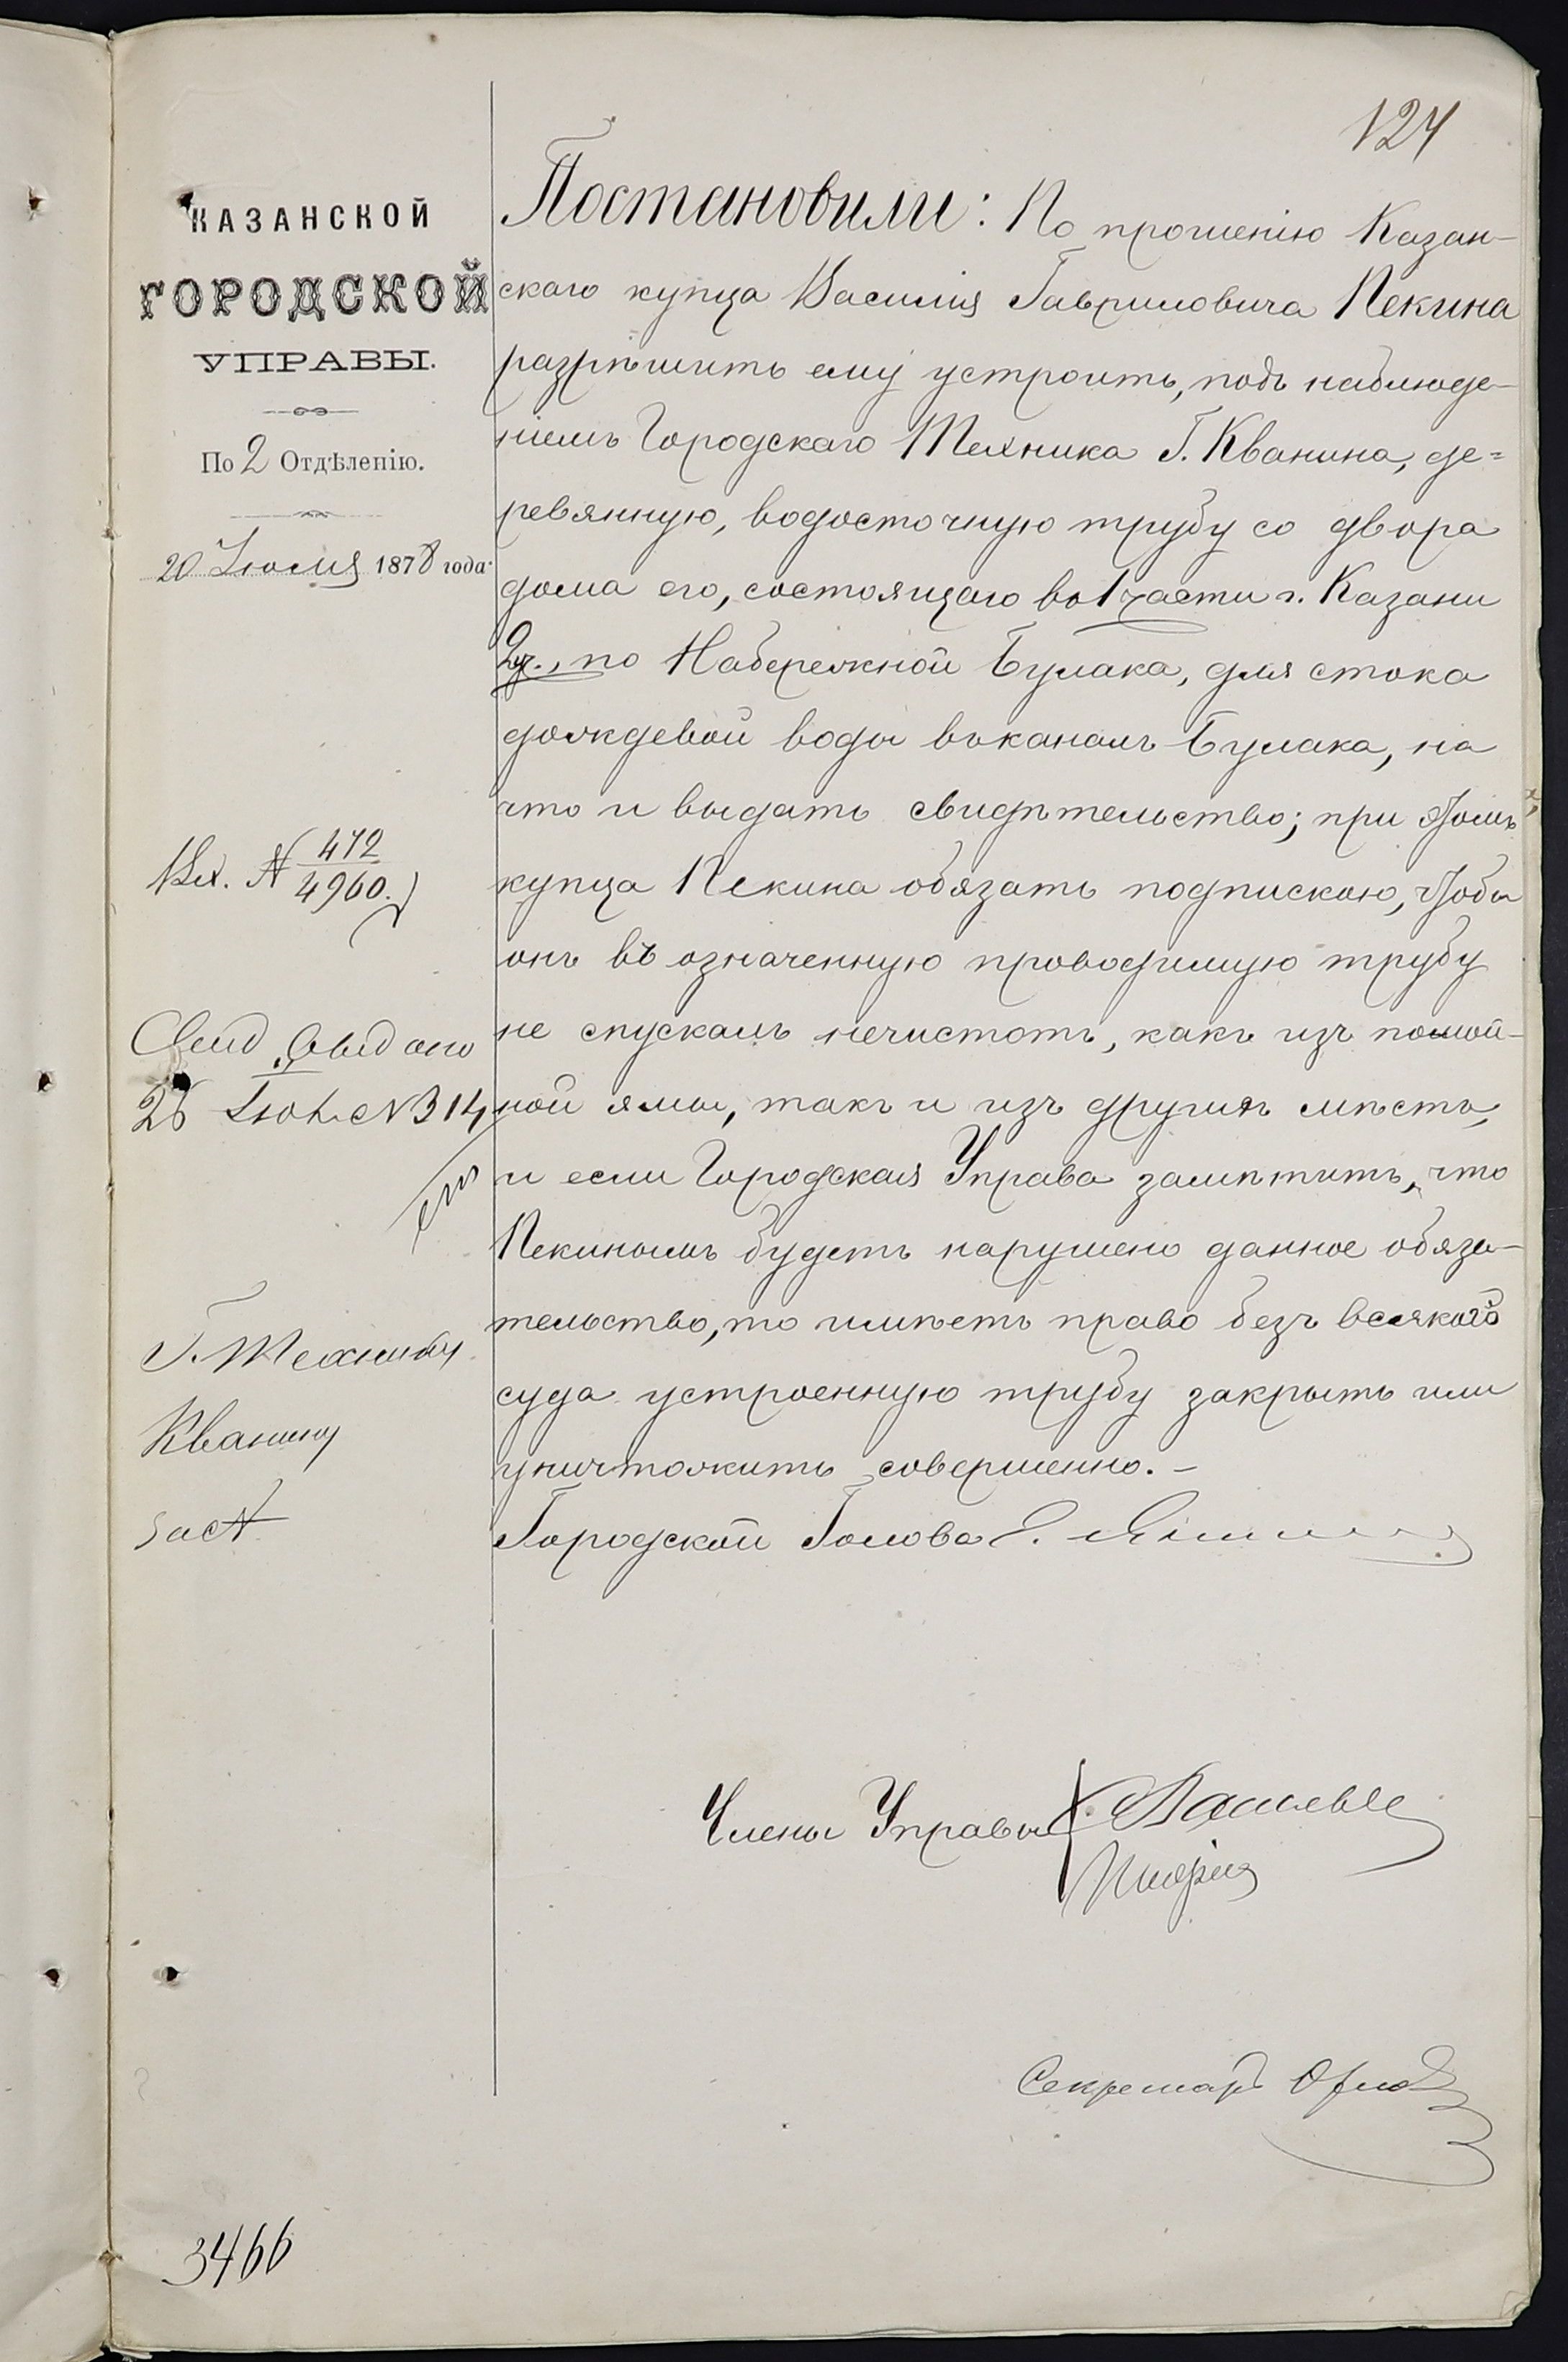 124
КАЗАНСКОЙ
ГОРОДСКОЙ
УПРАВЫ.
По 2 Отдѣленію.
20 Іюля 1878 года
Вх. № 472
4960.
Свид. выдано
28 Іюл № 314
Г. Технику
Кванину
за №
3466
Постановили: По прошенію Казан-
скаго купца Василія Гавриловича Пекина
разрѣшить ему устроить, подъ наблюде-
ніемъ Городскаго Техника Г. Кванина, де=
ревянную, водосточную трубу со двора
дома его, состоящаго во 1 части г. Казани
2 у., по Набережной Булака, для стока
дождевой воды въ каналъ Булака, на
что и выдать свидѣтельство; при этомъ
купца Пекина обязать подпискою, чтобы
онъ въ означенную проводимую трубу
не спускалъ нечистотъ, какъ изъ помой-
ной ямы, такъ и изъ другихъ мѣстъ,
и если Городская Управа замѣтитъ, что
Пекинымъ будетъ нарушено данное обяза-
тельство, то имѣетъ право безъ всякаго
суда устроенную трубу закрыть или
уничтожить совершенно. –
Городской Голова
Члены Управы
Секретарь